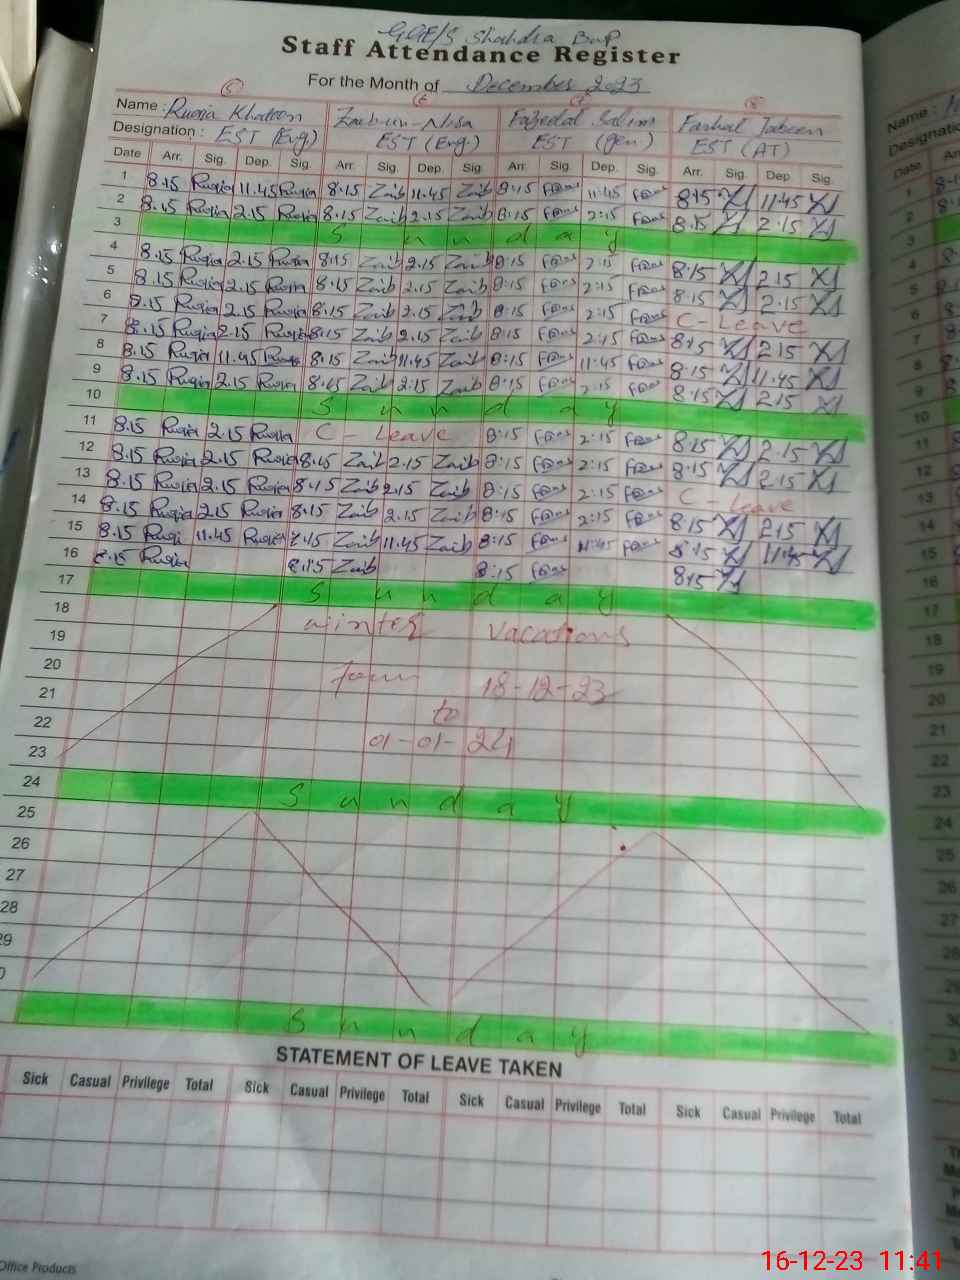 GGE/S Shahdra BWP
Staff Attendance Register
For the Month of December 2023
5 6 7 8
Name : Ruqia Khatoon Zaib-un-Nisa Farhat Jabeen
Designation : EST (Eng) EST (Eng.) EST (Gen) EST (AT)
Date Arr. Sig. Dep. Sig. Arr. Sig. Dep. Sig. Arr. Sig. Dep. Sig. Arr. Sig. Dep. Sig.
1 8.15 Ruqia 11.45 Ruqia 8.15 Zaib 11.45 Zaib 8:15 11:45 8:15 11.45
2 8.15 Ruqia 2.15 Ruqia 8.15 Zaib 2.15 Zaib 8:15 2:15 8.15 2.15
3 S u n d a y
4 8.15 Ruqia 2.15 Ruqia 8.15 Zaib 2.15 Zaib 8:15 2:15 8.15 2.15
5 8.15 Ruqia 2.15 Ruqia 8.15 Zaib 2.15 Zaib 8:15 2:15 8.15 2.15
6 8.15 Ruqia 2.15 Ruqia 8.15 Zaib 2.15 Zaib 8:15 2:15 C-Leave
7 8.15 Ruqia 2.15 Ruqia 8.15 Zaib 2.15 Zaib 8:15 2:15 8.15 2.15
8 8.15 Ruqia 11.45 Ruqia 8.15 Zaib 11.45 Zaib 8:15 11:45 8.15 11.45
9 8.15 Ruqia 2.15 Ruqia 8.15 Zaib 2:15 Zaib 8:15 2:15 8.15 2.15
10 S u n d a y
11 8.15 Ruqia 2.15 Ruqia C - Leave 8:15 2:15 8.15 2.15
12 8.15 Ruqia 2.15 Ruqia 8.15 Zaib 2.15 Zaib 8:15 2:15 8.15 2.15
13 8.15 Ruqia 2.15 Ruqia 8.15 Zaib 2.15 Zaib 8:15 2:15 C - Leave
14 8.15 Ruqia 2.15 Ruqia 8.15 Zaib 2.15 Zaib 8:15 2:15 8.15 2.15
15 8.15 Ruqia 11.45 Ruqia 8.15 Zaib 11.45 Zaib 8:15 11:45 8.15 11.45
16 8.15 Ruqia 8.15 Zaib 8:15 8.15
17 S u n d a y
18
19 winter vacations
20
21 18-12-23
22 to
23 01-01-24
24 S u n d a y
25
26
27
28
29
S u n d a y
STATEMENT OF LEAVE TAKEN
Sick Casual Privilege Total Sick Casual Privilege Total Sick Casual Privilege Total Sick Casual Privilege Total
Office Products
16-12-23 11:41